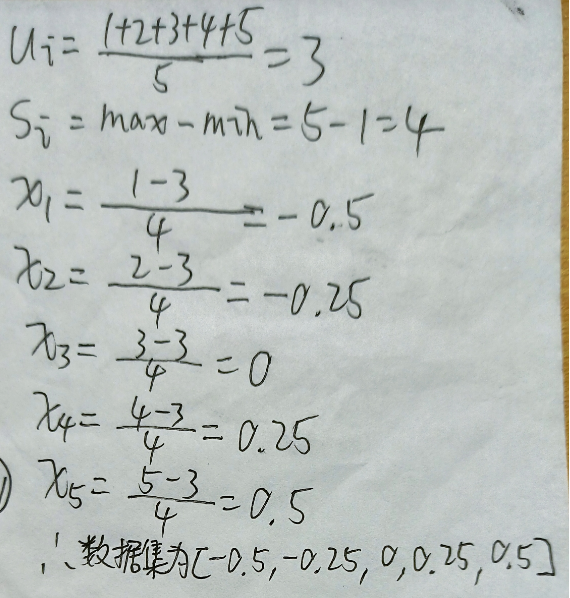 Ui = (1+2+3+4+5)/5 = 3
Si = max - min = 5 - 1 = 4
x1 = (1-3)/4 = -0.5
x2 = (2-3)/4 = -0.25
x3 = (3-3)/4 = 0
x4 = (4-3)/4 = 0.25
x5 = (5-3)/4 = 0.5
∴数据集为[-0.5, -0.25, 0, 0.25, 0.5]